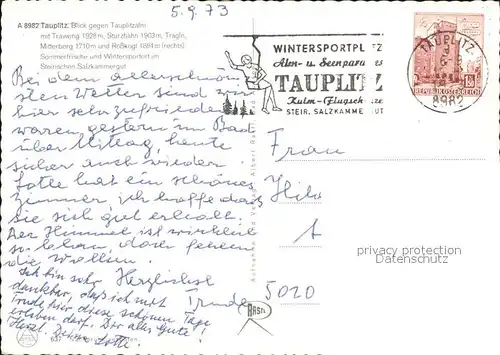 5.9.73
A 8982 Tauplitz: Blick gegen Tauplitzalm
mit Traweng 1928 m, Sturzhahn 1903 m, Tragln,
Mitterberg 1710 m und Roßkogl 1884 m (rechts)
Sommerfrische und Wintersportort im
Steirischen Salzkammergut
WINTERSPORTPL TZ
Alm- u. Seenpara es
TAUPLITZ
Kulm-Flugsch ze
STEIR. SALZKAMME UT
TAUPLITZ
8982
REPUBLIK ÖSTERREICH
Bei dem allerschön
sten Wetter sind wir
hier sehr zufrieden
waren gestern im Bad
über Mittag, heute
sicher auch wieder.
Lotte hat ein schönes
Zimmer, ich hoffe daß
sie sich gut erholt.
Der Himmel ist wirklich
so blau, doch fehlen
die Wolken.
Herzlichst
Trude
Ich bin sehr
dankbar, daß ich mit
Trude hier diese schönen Tage
erleben darf. Dir alles Gute!
Herzl. Deine Lotte.
Frau
Hild
A
5020
BASEL
privacy protection
ansichtskarten-center.de